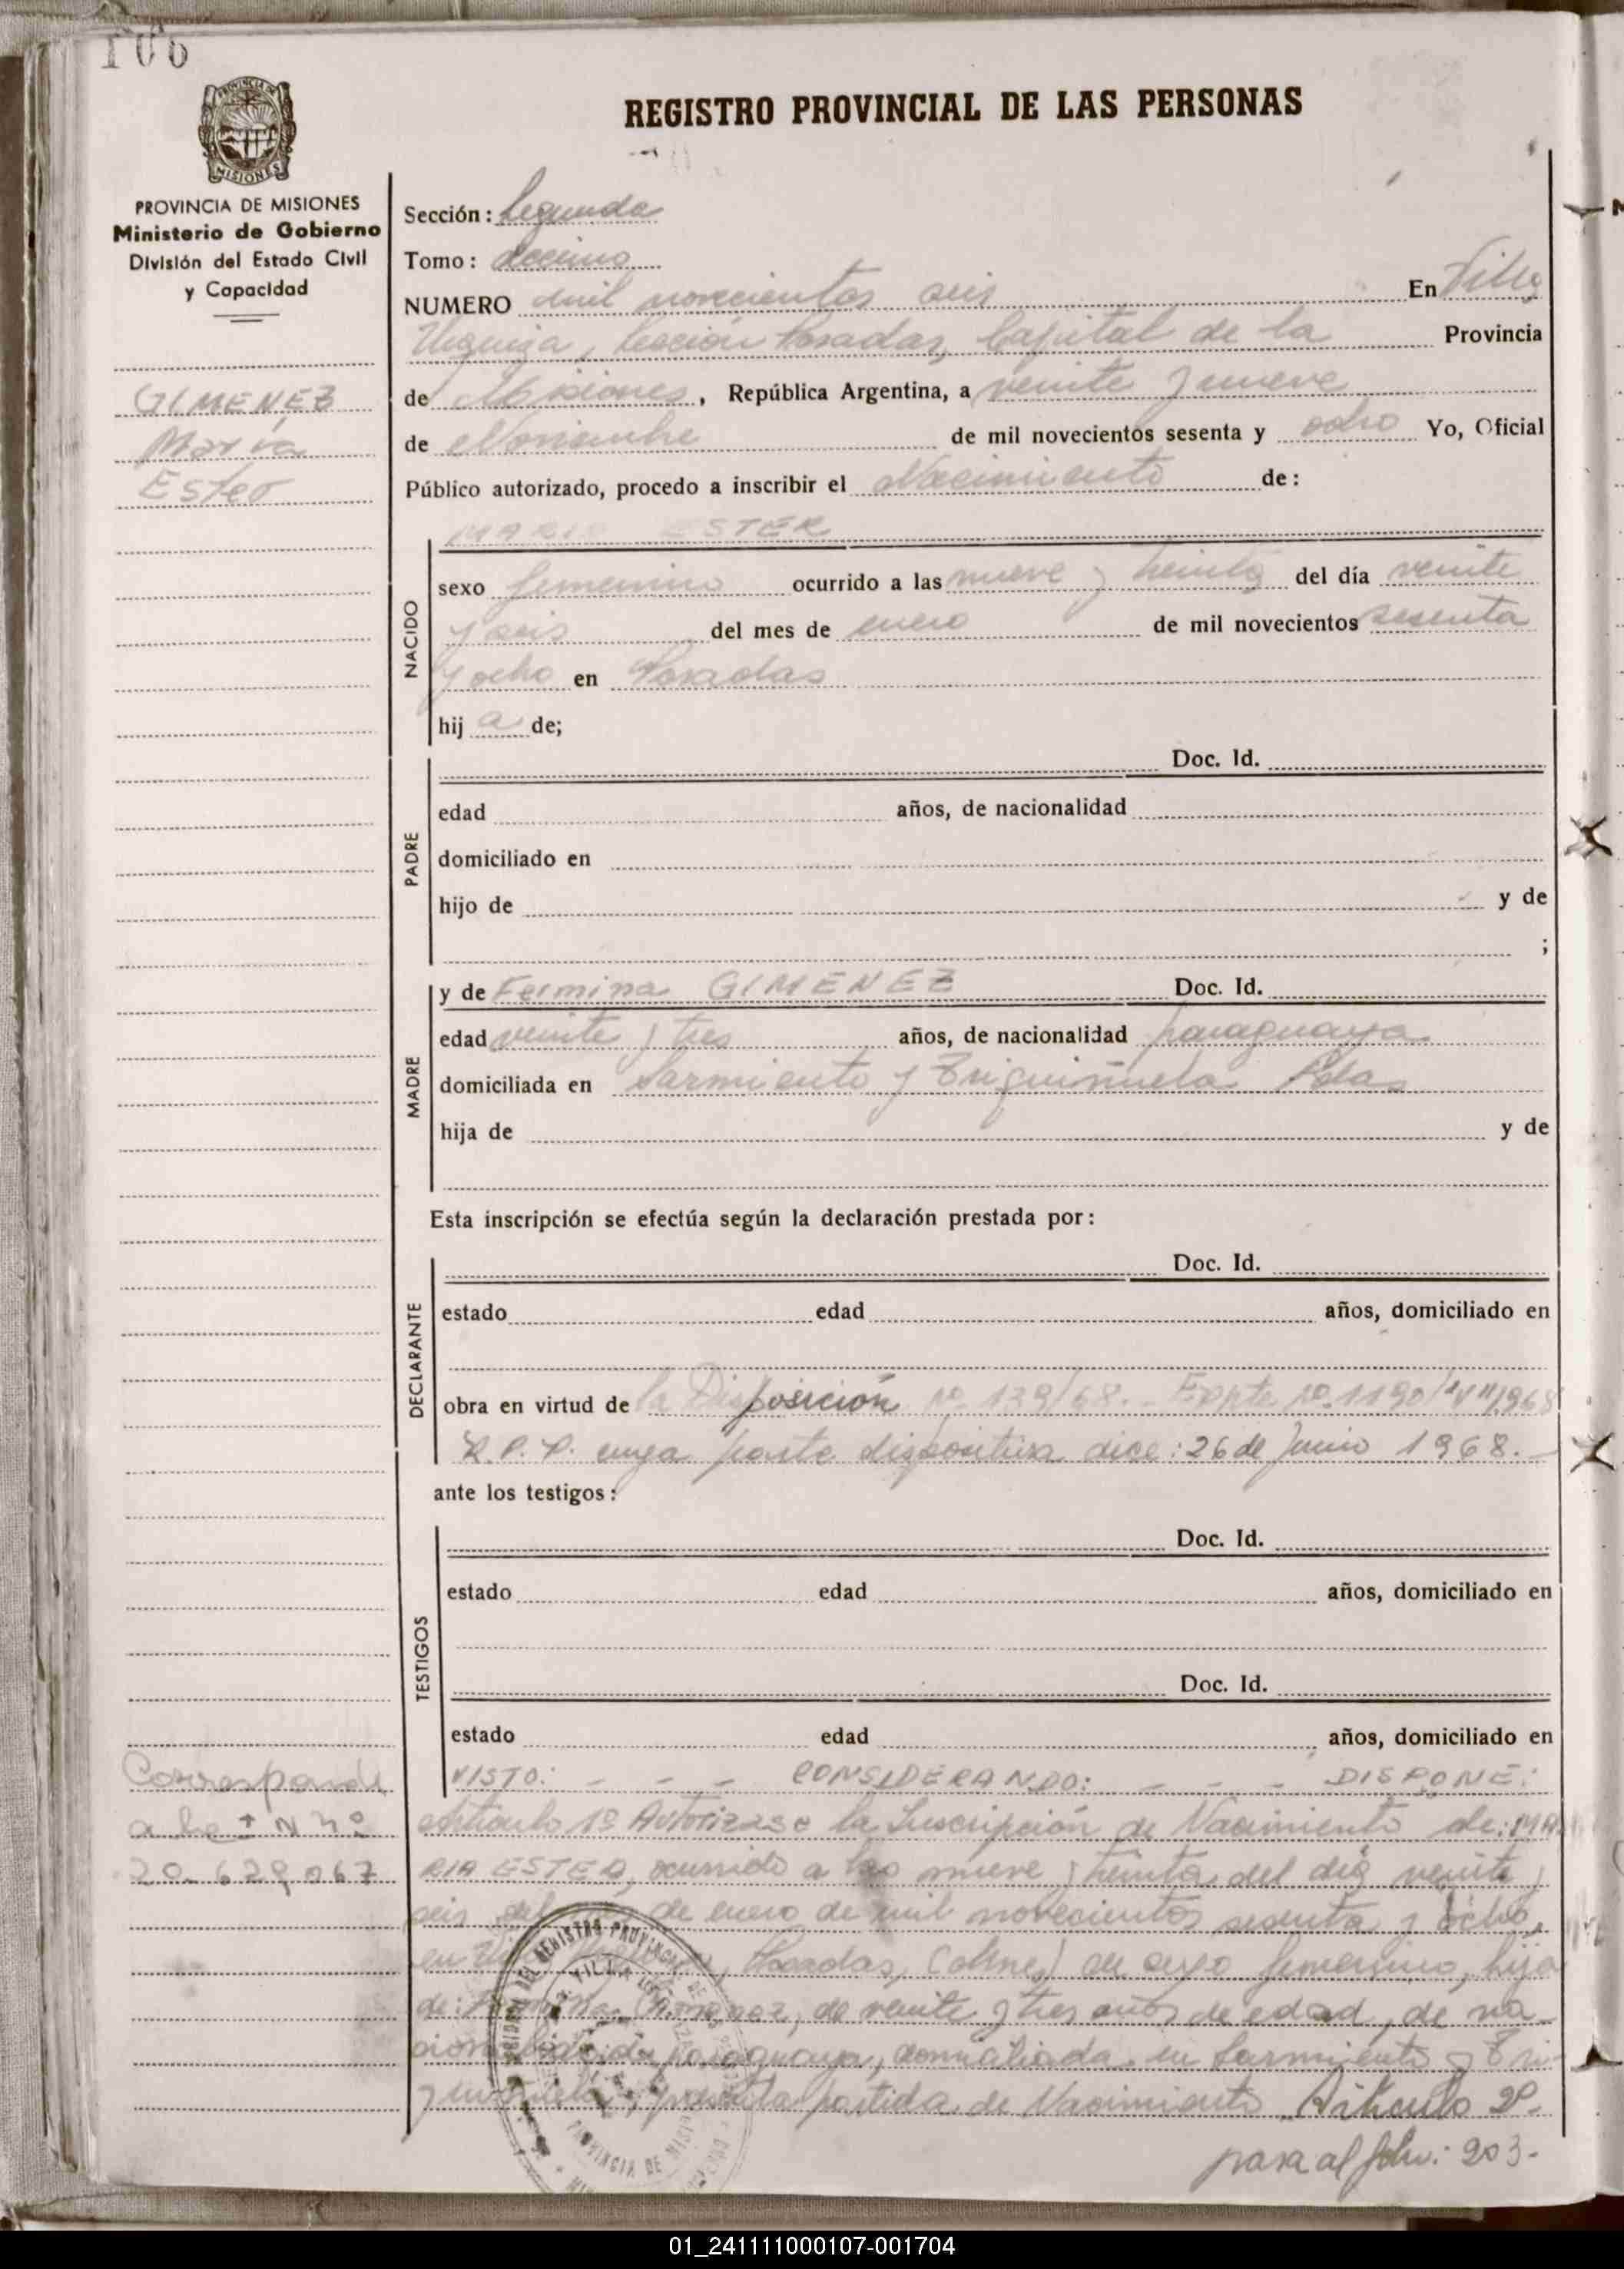 106
REGISTRO PROVINCIAL DE LAS PERSONAS
PROVINCIA DE MISIONES
MISIONES
PROVINCIA DE MISIONES
Ministerio de Gobierno
División del Estado Civil
y Capacidad
GIMENEZ
María
Ester
Sección: Segunda
Tomo: decimo
NUMERO mil novecientos seis En Villa
Urquiza, Sección Posadas, Capital de la Provincia
de Misiones, República Argentina, a veinte y nueve
de Noviembre de mil novecientos sesenta y ocho Yo, Oficial
Público autorizado, procedo a inscribir el Nacimiento de:
MARIA ESTER
NACIDO
sexo femenino ocurrido a las nueve y treinta del día veinte
y seis del mes de enero de mil novecientos sesenta
y ocho en Posadas
hij a de;
PADRE
Doc. Id.
edad años, de nacionalidad
domiciliado en
hijo de y de
;
MADRE
y de Fermina GIMENEZ Doc. Id.
edad veinte y tres años, de nacionalidad paraguaya
domiciliada en Sarmiento y Pdas
hija de y de
Esta inscripción se efectúa según la declaración prestada por:
DECLARANTE
Doc. Id.
estado edad años, domiciliado en
obra en virtud de la Disposición nº 139/68.- Expte nº 1190
R.P.P. cuya parte dispositiva dice: 26 de Junio 1968.-
ante los testigos:
TESTIGOS
Doc. Id.
estado edad años, domiciliado en
Doc. Id.
estado edad años, domiciliado en
VISTO: - - - CONSIDERANDO: - - - DISPONE:
Articulo 1º Autorizase la Inscripción de Nacimiento de: MA
RIA ESTER, ocurrido a las nueve y treinta del día veinte y
seis del de enero de mil novecientos sesenta y ocho,
en Posadas, de sexo femenino, hija
de: Fermina Gimenez, de veinte y tres años de edad, de na
cionalidad paraguaya, domiciliada en Sarmiento y
partida de Nacimiento Artículo 2º.
pasa al folio: 203.
Corresponde
a la N Nº
20.629.067
DEL REGISTRO PROVINCIAL DE
VILLA
PROVINCIA DE MISIONES
01_241111000107-001704